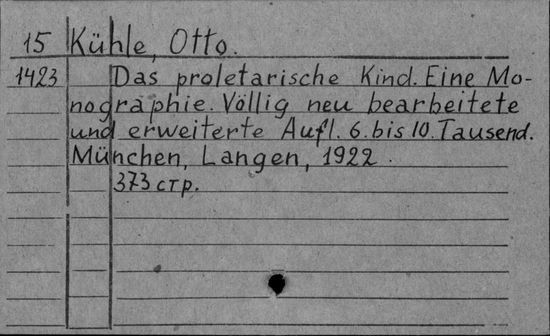 15 Kühle, Otto.
1423 Das proletarische Kind. Eine Mo-
nographie. Völlig neu bearbeitete
und erweiterte Aufl. 6. bis 10. Tausend.
München, Langen, 1922.
373 стр.